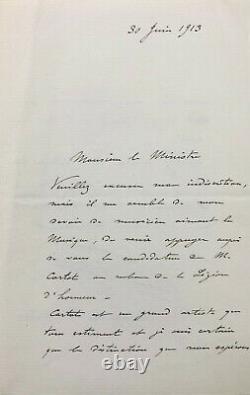 30 Juin 1913
Monsieur le Ministre
Veuillez excuser mon indiscrétion,
mais il me semble de mon
devoir de musicien aimant la
Musique, de venir appuyer auprès
de vous la candidature de M.
Cortot au ruban de la Légion
d'honneur -
Cortot est un grand artiste que
tous estiment et je suis certain
que la distinction que nous espérons
ebay